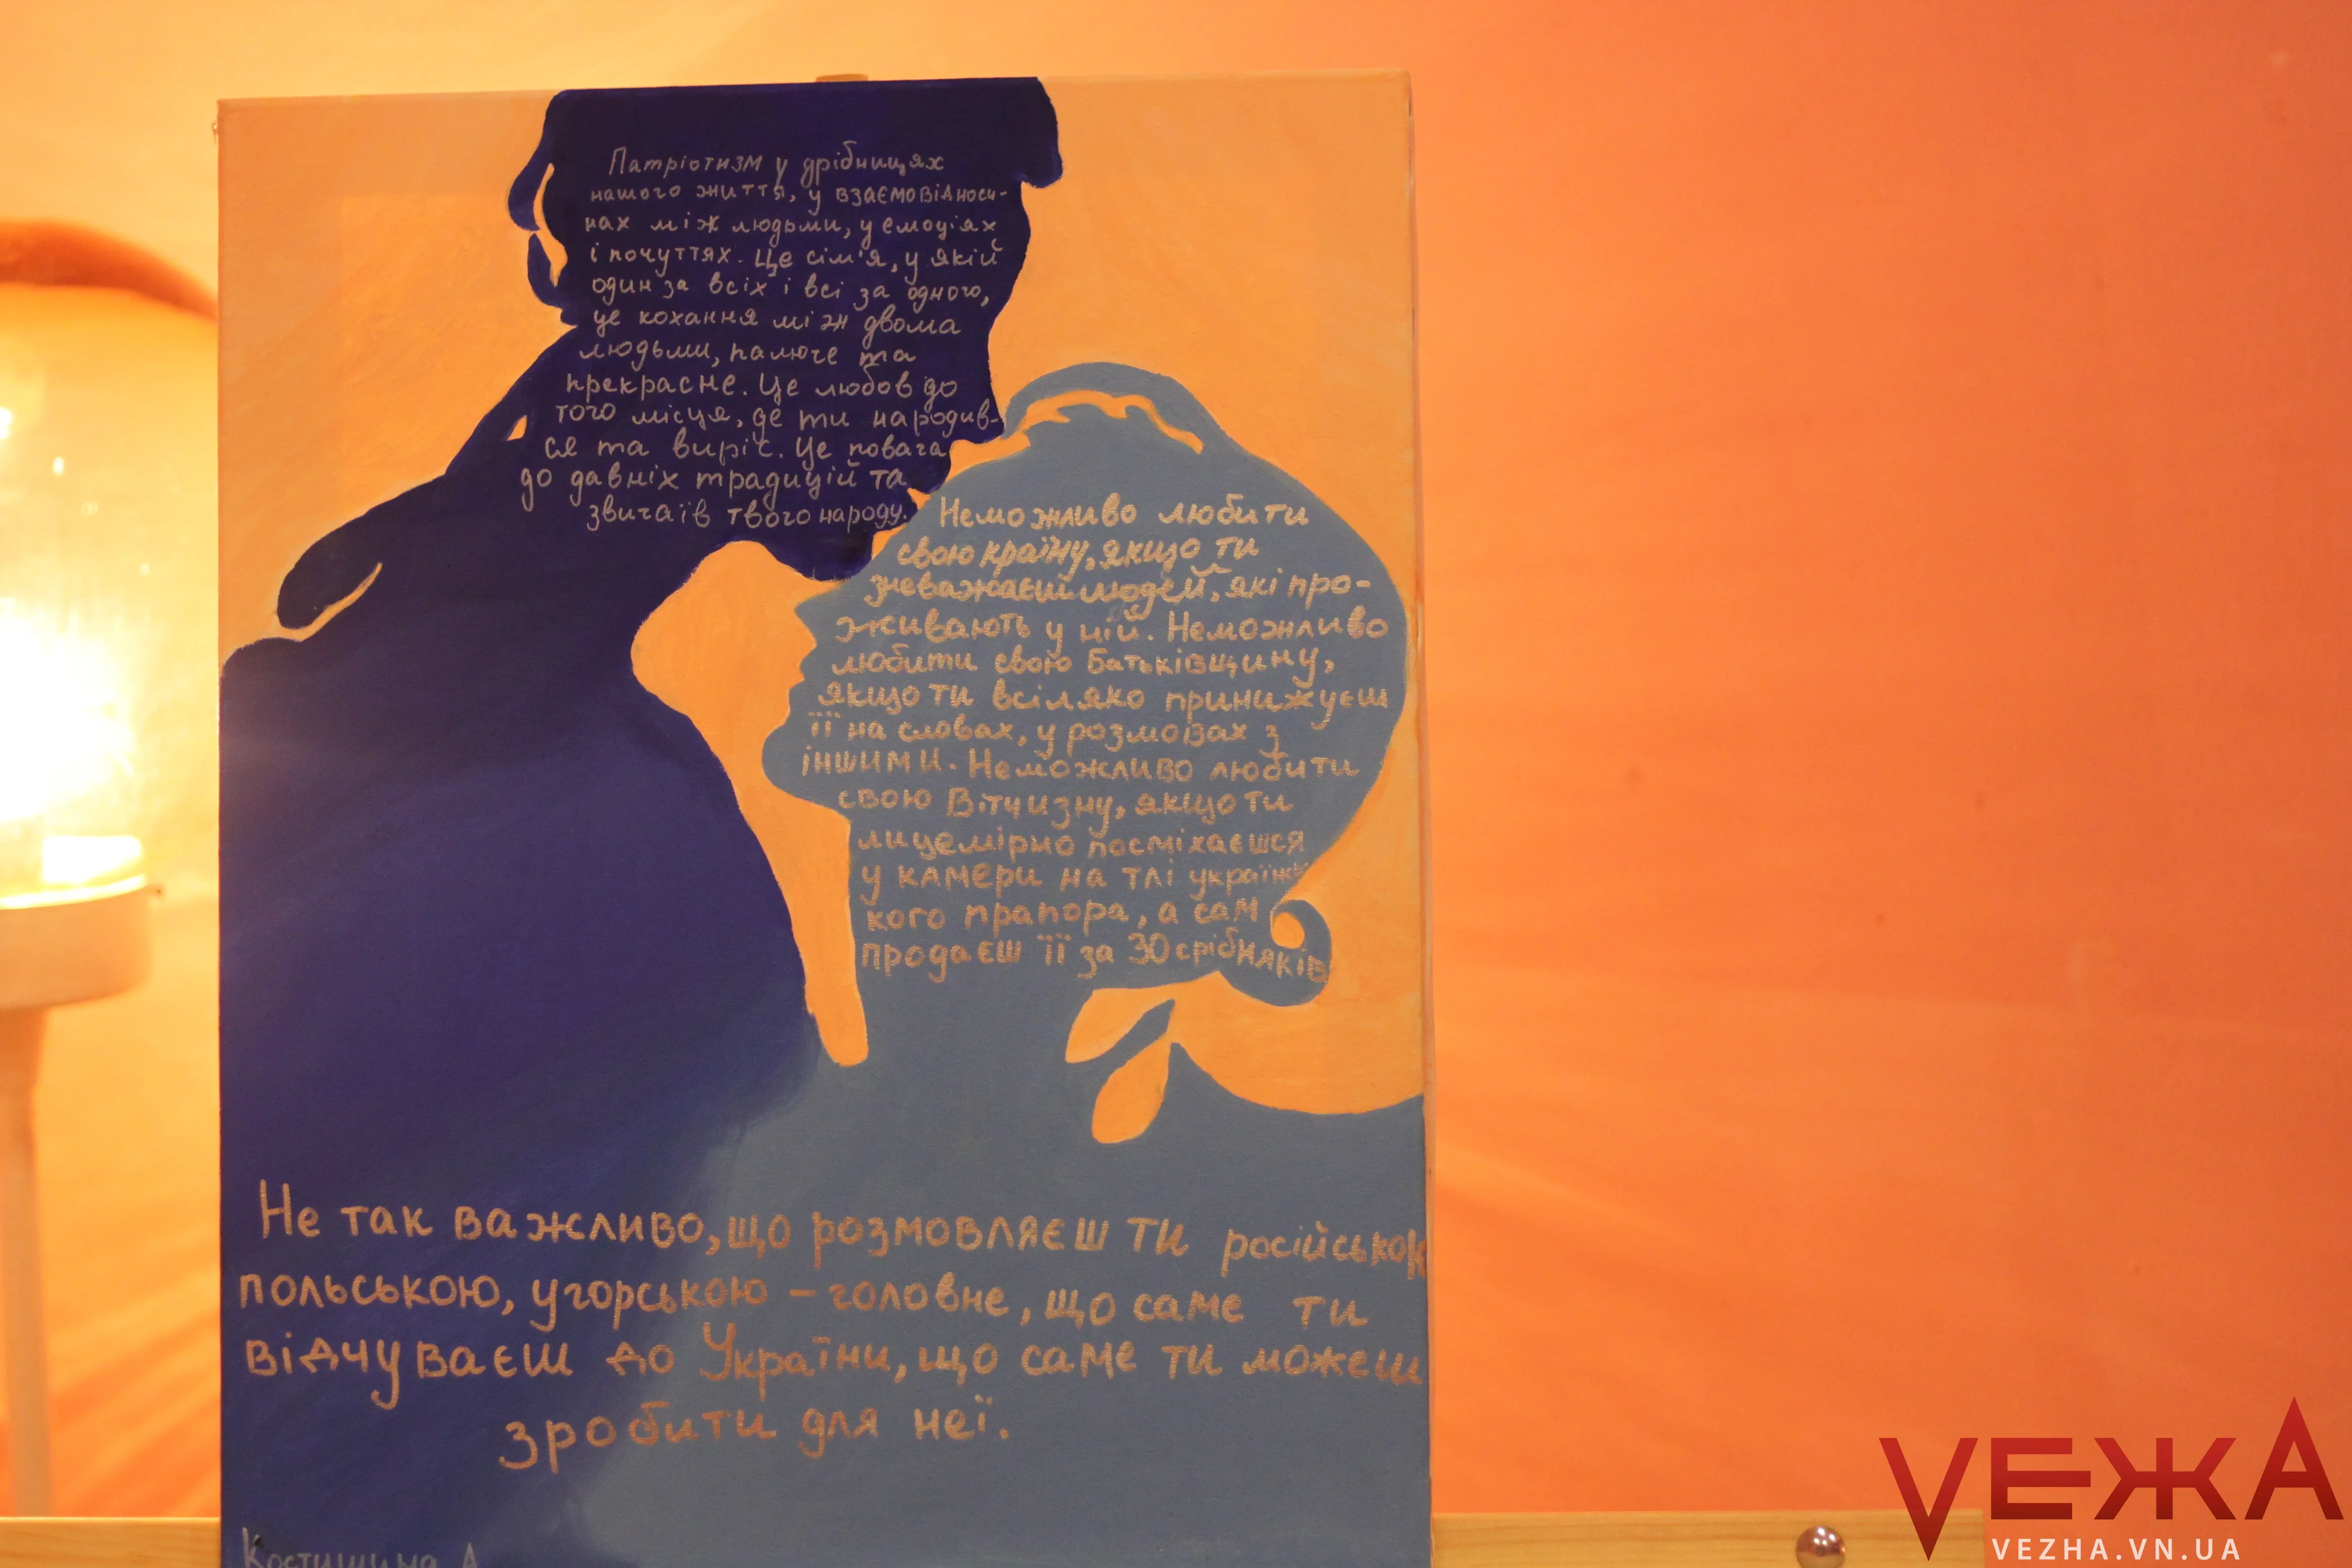 Патріотизм у дрібницях
нашого життя, у взаємовідноси-
нах між людьми, у емоціях
і почуттях. Це сім'я, у якій
один за всіх і всі за одного,
це кохання між двома
людьми, палюче та
прекрасне. Це любов до
того місця, де ти народив-
ся та виріс. Це повага
до давніх традицій та
звичаїв твого народу.
Неможливо любити
свою країну, якщо ти
зневажаєш людей, які про-
живають у ній. Неможливо
любити свою Батьківщину,
якщо ти всіляко принижуєш
її на словах, у розмовах з
іншими. Неможливо любити
свою Вітчизну, якщо ти
лицемірно посміхаєшся
у камери на тлі українсь
кого прапора, а сам
продаєш її за 30 срібняків
Не так важливо, що розмовляєш ти російською
польською, угорською – головне, що саме ти
відчуваєш до України, що саме ти можеш
зробити для неї.
Костишина А
VЕЖА
VEZHA.VN.UA